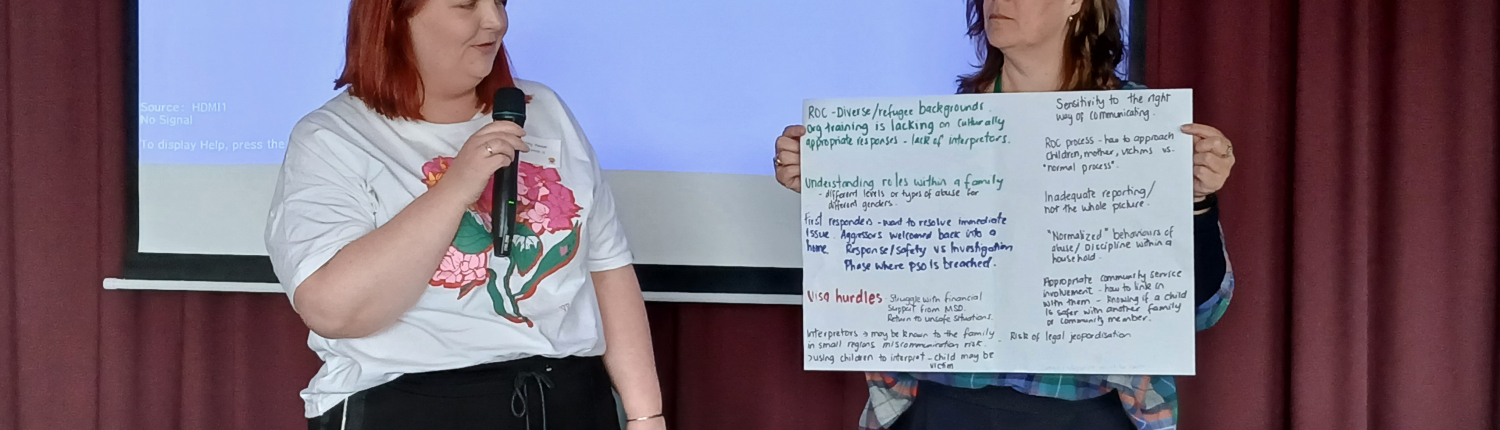 Source: HDMI1
No Signal
To display Help, press the
ROC - Diverse/refugee backgrounds.
Org training is lacking on culturally
appropriate responses - lack of interpretors.
Understanding roles within a family
- different levels or types of abuse for
different genders.
First responders - want to resolve immediate
issue. Aggressors welcomed back into a
home. Response/safety vs Investigation
Phase where PSO is breached.
Visa hurdles
Struggle with financial
Support from MSD.
Return to unsafe situations.
Interpretors → may be known to the family
in small regions miscommunication risk.
→ using children to interpret - child may be
victim
Sensitivity to the right
way of communicating.
ROC process - how to approach
children, mother, victims vs.
"normal process".
Inadequate reporting/
not the whole picture.
"Normalized" behaviours of
abuse/ Discipline within a
household.
Appropriate community service
involvement - how to link in
with them - knowing if a child
is safer with another family
or community member.
- Risk of legal jeopardisation